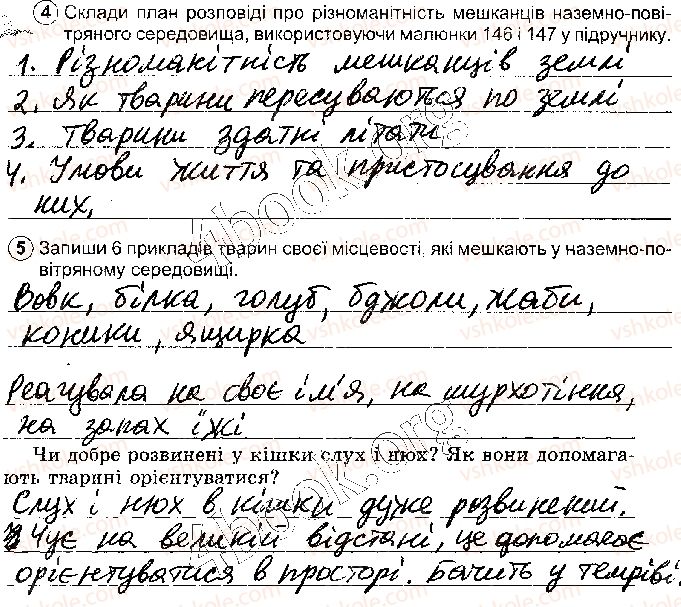 4 Склади план розповіді про різноманітність мешканців наземно-пові-
тряного середовища, використовуючи малюнки 146 і 147 у підручнику.
1. Різноманітність мешканців землі
2. Як тварини пересуваються по землі
3. Тварини здатні літати
4. Умови життя та пристосування до
них.
5 Запиши 6 прикладів тварин своєї місцевості, які мешкають у наземно-по-
вітряному середовищі.
Вовк, білка, голуб, бджоли, жаби,
коники, ящирка
Реагувала на своє ім'я, на шурхотіння,
на запах їжі
Чи добре розвинені у кішки слух і нюх? Як вони допомага-
ють тварині орієнтуватися?
Слух і нюх в кішки дуже розвинений.
Чує на великій відстані, це допомагає
орієнтуватися в просторі. Бачить у темряві.
4book.org
4book.org